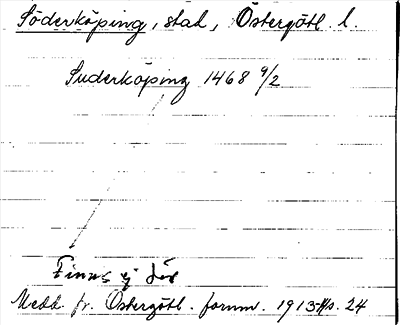 Söderköping, stad, Östergötl. l.
Suderköping 1468 9/2
Finns ej här
Medd. fr. Östergötl. fornm. 1913 s. 24